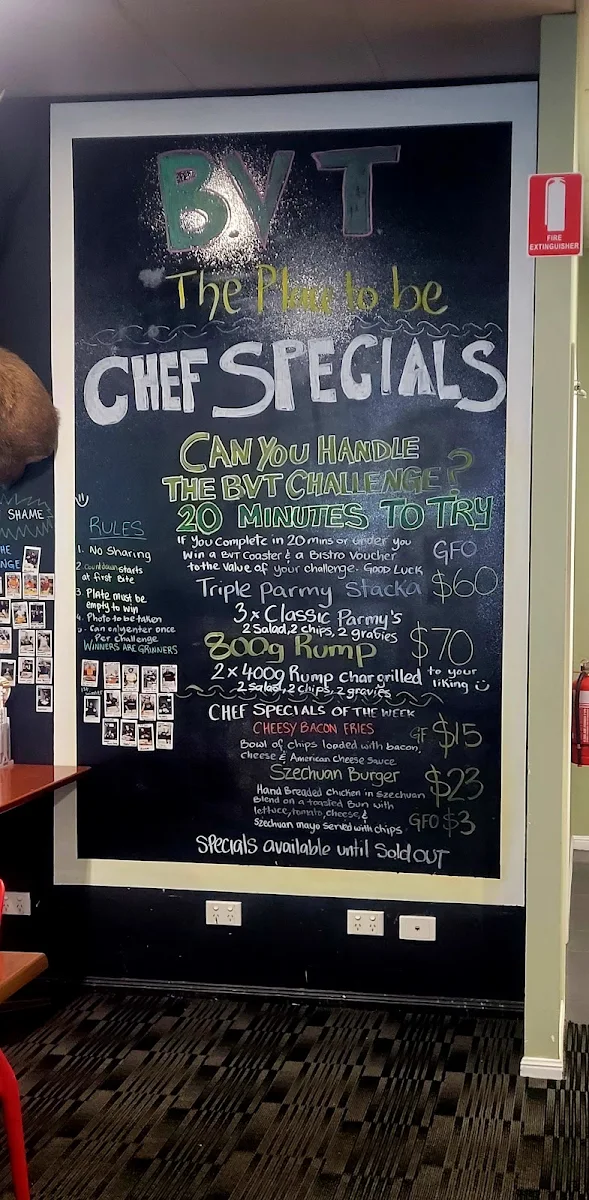 BVT
The Place to be
CHEF SPECIALS
CAN YOU HANDLE
THE BVT CHALLENGE?
20 MINUTES TO TRY
If you complete in 20 mins or under you
win a BVT Coaster & a Bistro Voucher
to the value of your challenge. Good Luck
GFO
Triple Parmy Stacka $60
3 x Classic Parmy's
2 Salad, 2 chips, 2 gravies
800g Rump $70
2 x 400g Rump Char grilled to your
liking
2 salad, 2 chips, 2 gravies
CHEF SPECIALS OF THE WEEK
CHEESY BACON FRIES GF $15
Bowl of chips loaded with bacon,
cheese & American Cheese Sauce
Szechuan Burger $23
Hand Breaded chicken in Szechuan
Blend on a toasted Bun with
lettuce, tomato, cheese, &
Szechuan mayo served with chips GFO $3
Specials available until Sold OUT
RULES
1. No Sharing
2. Countdown starts
at first Bite
3. Plate must be
empty to win
4. Photo to be taken
Can only enter once
Per challenge
WINNERS ARE GRINNERS
SHAME
FIRE
EXTINGUISHER